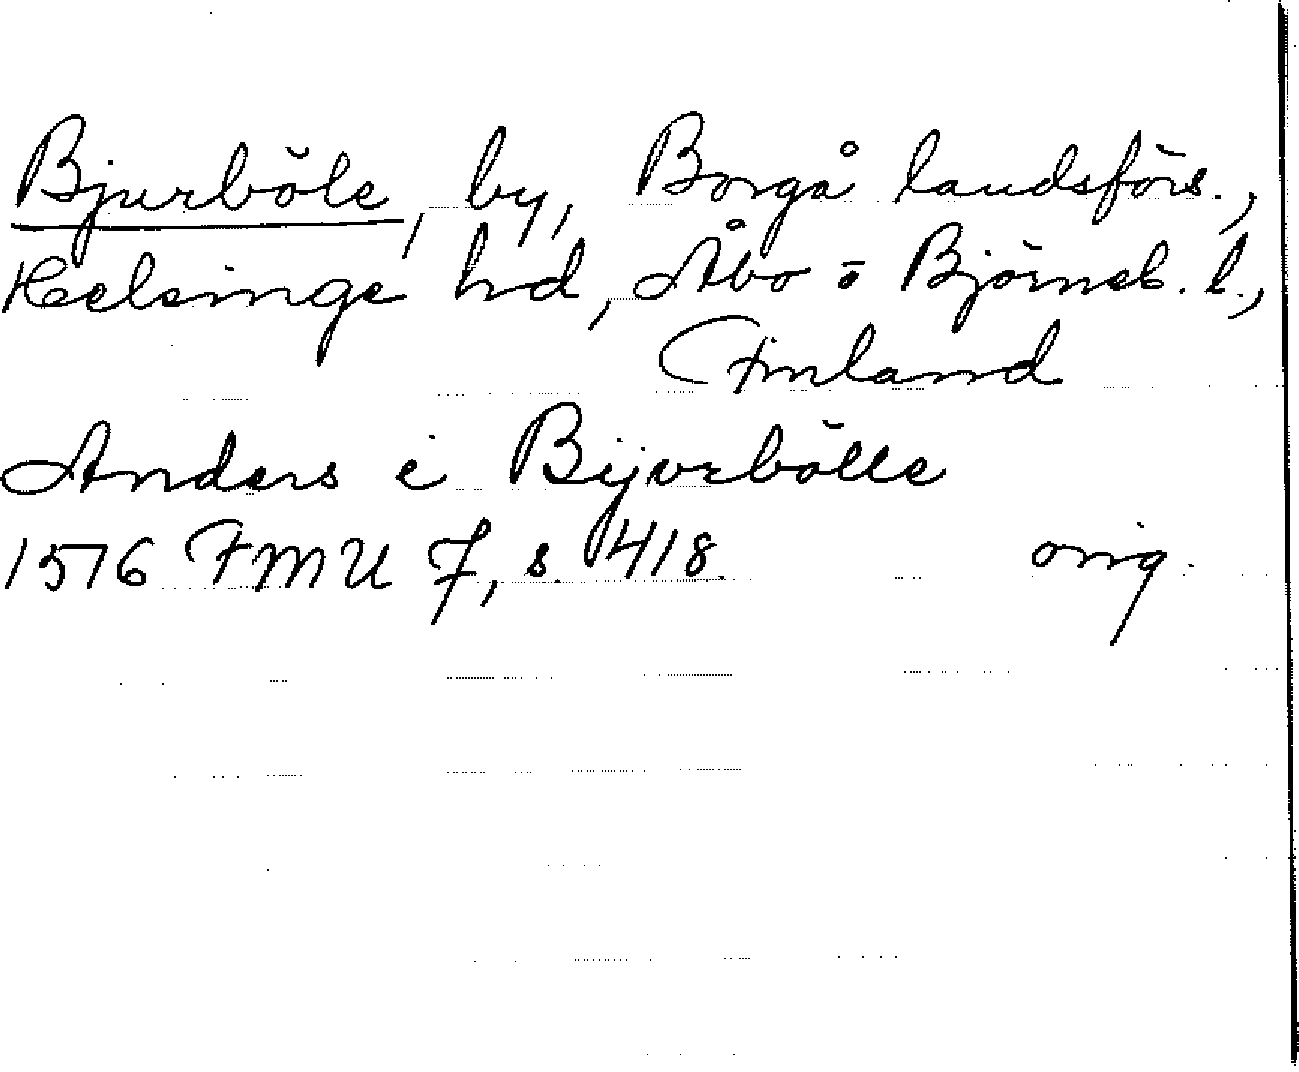 Bjurböle, by, Borgå landsförs.,
Helsinge hd, Åbo o Björneb. l.,
Finland
Anders i Bijurbölle
1576 FMU 7, s. 418. orig.